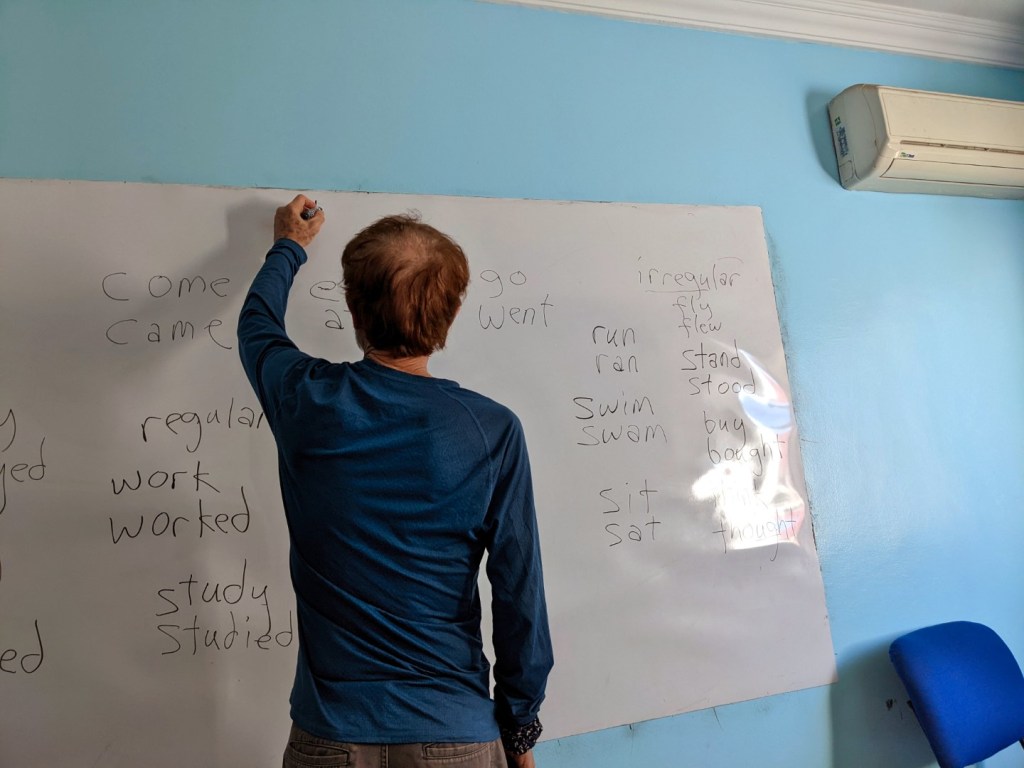 come
came
go
went
irregular
fly
flew
run
ran
stand
stood
swim
swam
buy
bought
sit
sat
thought
regular
work
worked
study
studied